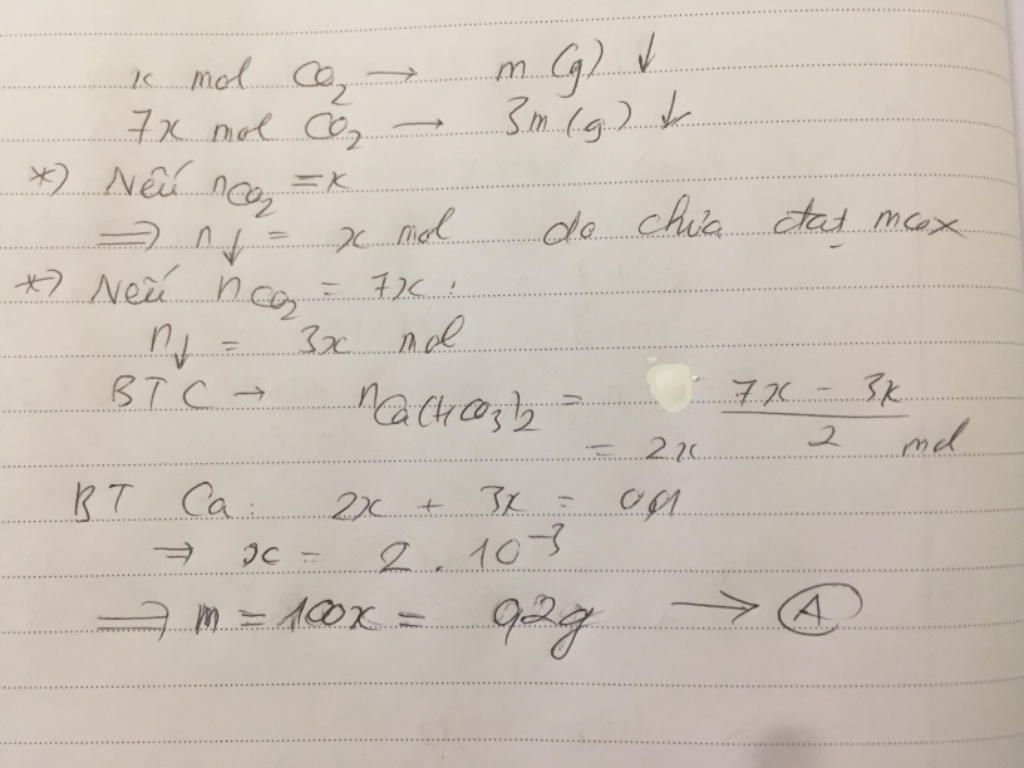 x mol CO2 → m (g) ↓
7x mol CO2 → 3m (g) ↓
*) Nếu nCO2 = x
⇒ n↓ = x mol do chưa đạt max
*) Nếu nCO2 = 7x :
n↓ = 3x mol
BTC → nCa(HCO3)2 = (7x - 3x)/2
= 2x mol
BT Ca: 2x + 3x = 0,01
⇒ x = 2 . 10^-3
⇒ m = 100x = 0,2g → A